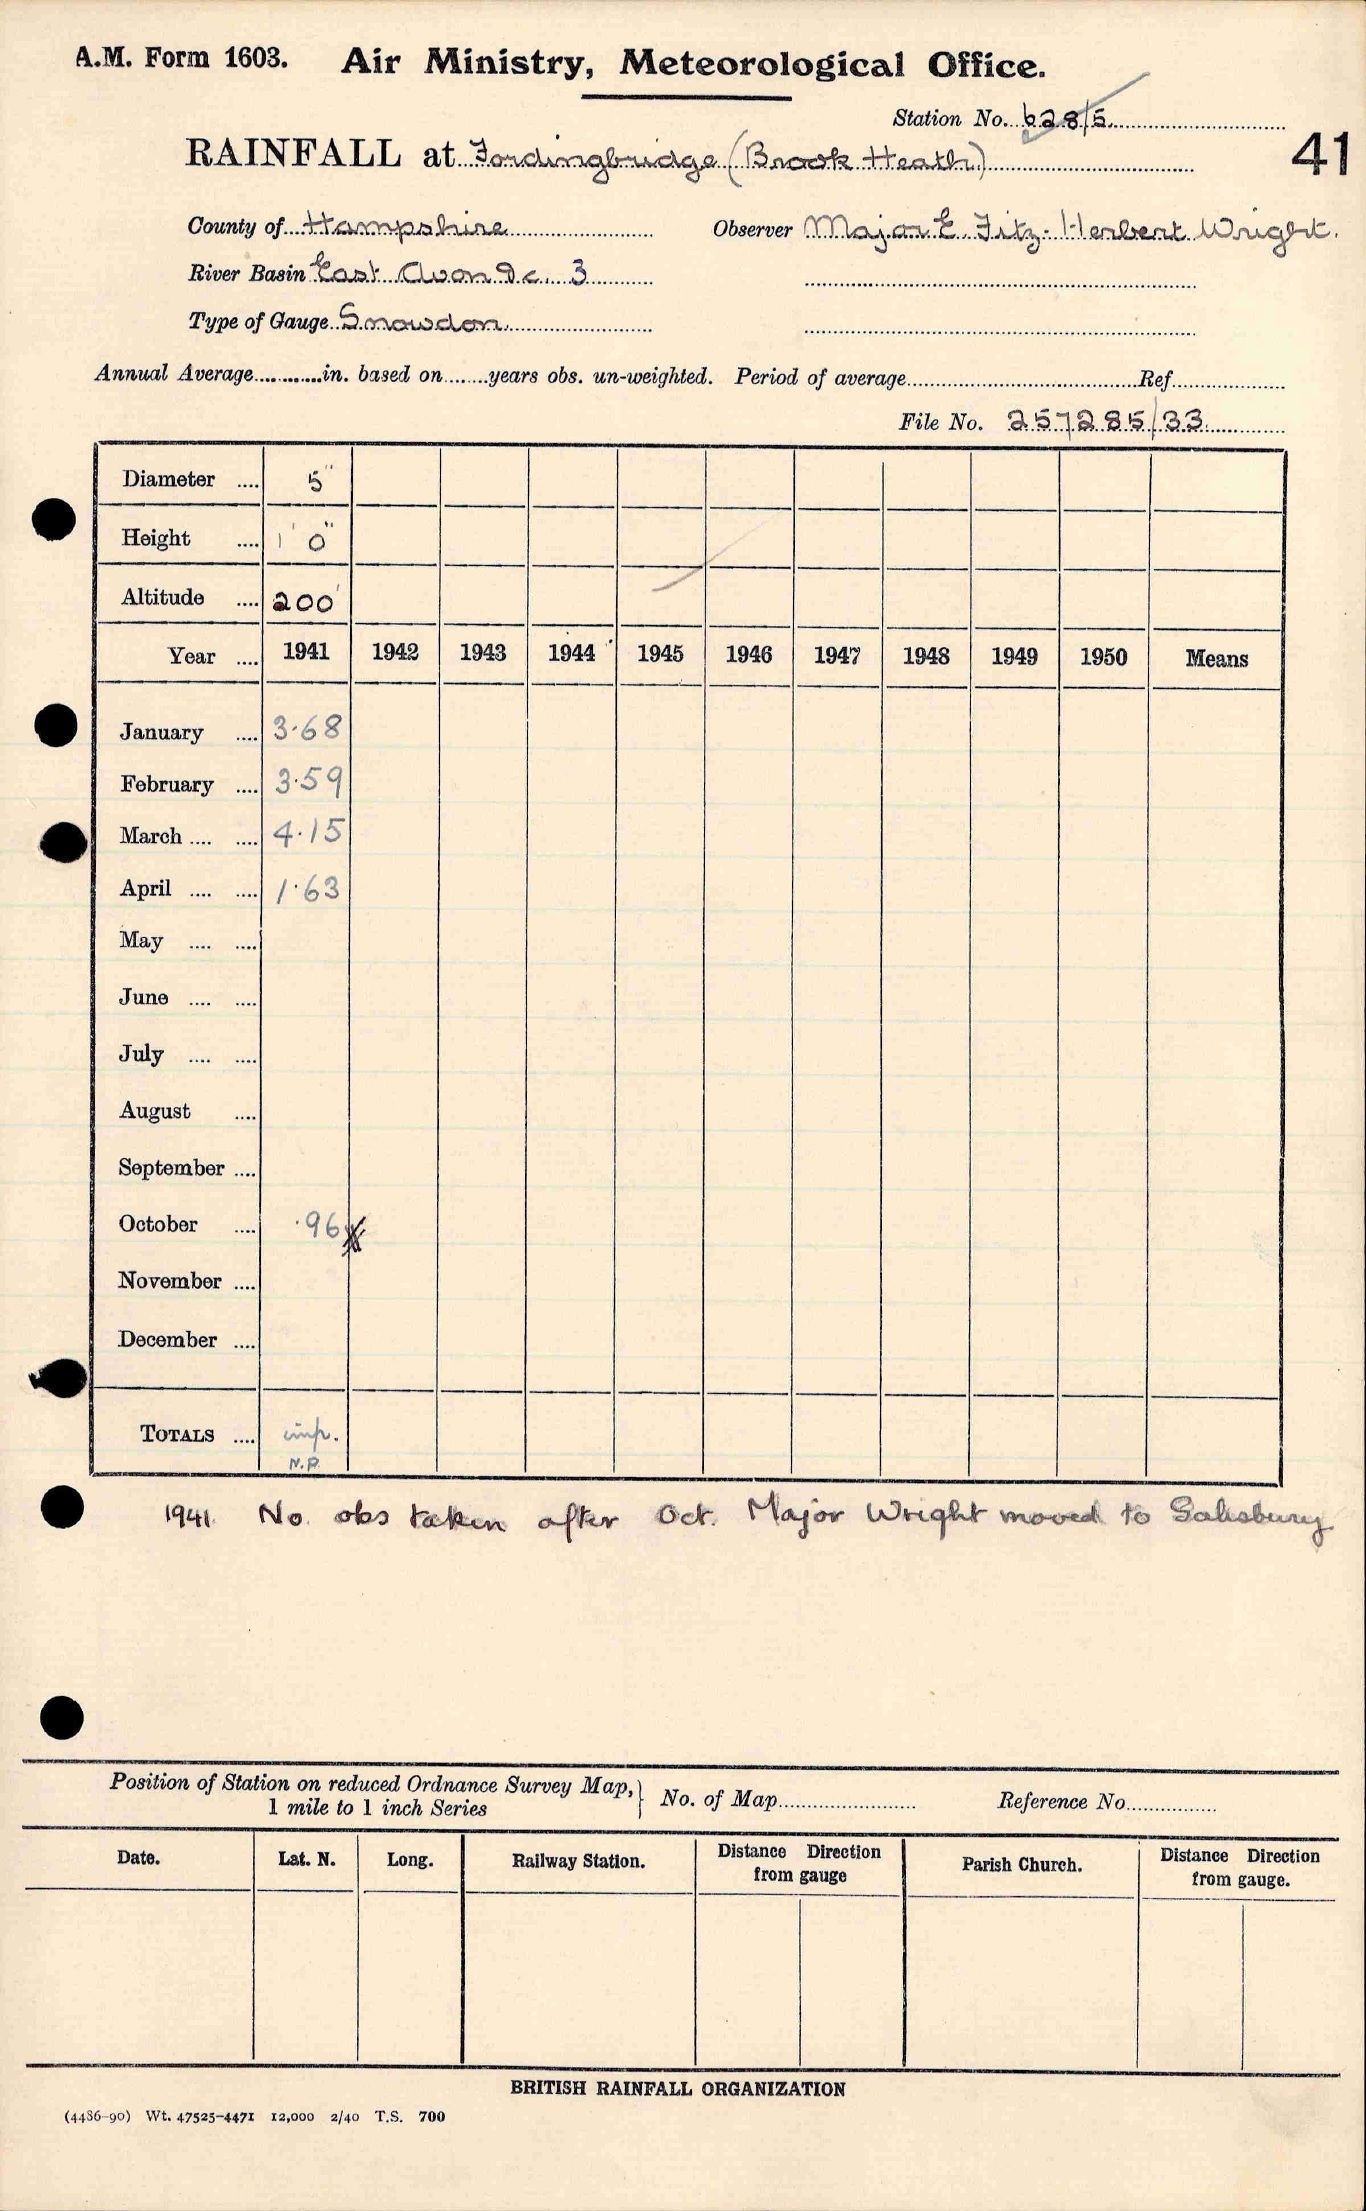 A.M. Form 1603. Air Ministry, Meteorological Office.
Station No. 628/5
RAINFALL at Fordingbridge (Brook Heath) 41
County of Hampshire Observer Major E. Fitz-Herbert Wright.
River Basin East Avon &c. 3
Type of Gauge Snowdon.
Annual Average............in. based on.......years obs. un-weighted. Period of average............Ref............
File No. 257285/33
Diameter .... 5"
Height .... 1' 0"
Altitude .... 200'
Year .... 1941 1942 1943 1944 1945 1946 1947 1948 1949 1950 Means
January .... 3·68
February .... 3·59
March .... .... 4·15
April .... .... 1·63
May .... ....
June .... ....
July .... ....
August ....
September ....
October .... ·96
November ....
December ....
TOTALS .... imp.
N.P.
1941. No obs taken after Oct. Major Wright moved to Salisbury
Position of Station on reduced Ordnance Survey Map, } No. of Map............ Reference No............
1 mile to 1 inch Series
Date. Lat. N. Long. Railway Station. Distance Direction from gauge Parish Church. Distance Direction from gauge.
BRITISH RAINFALL ORGANIZATION
(4486-90) Wt. 47525-4471 12,000 2/40 T.S. 700